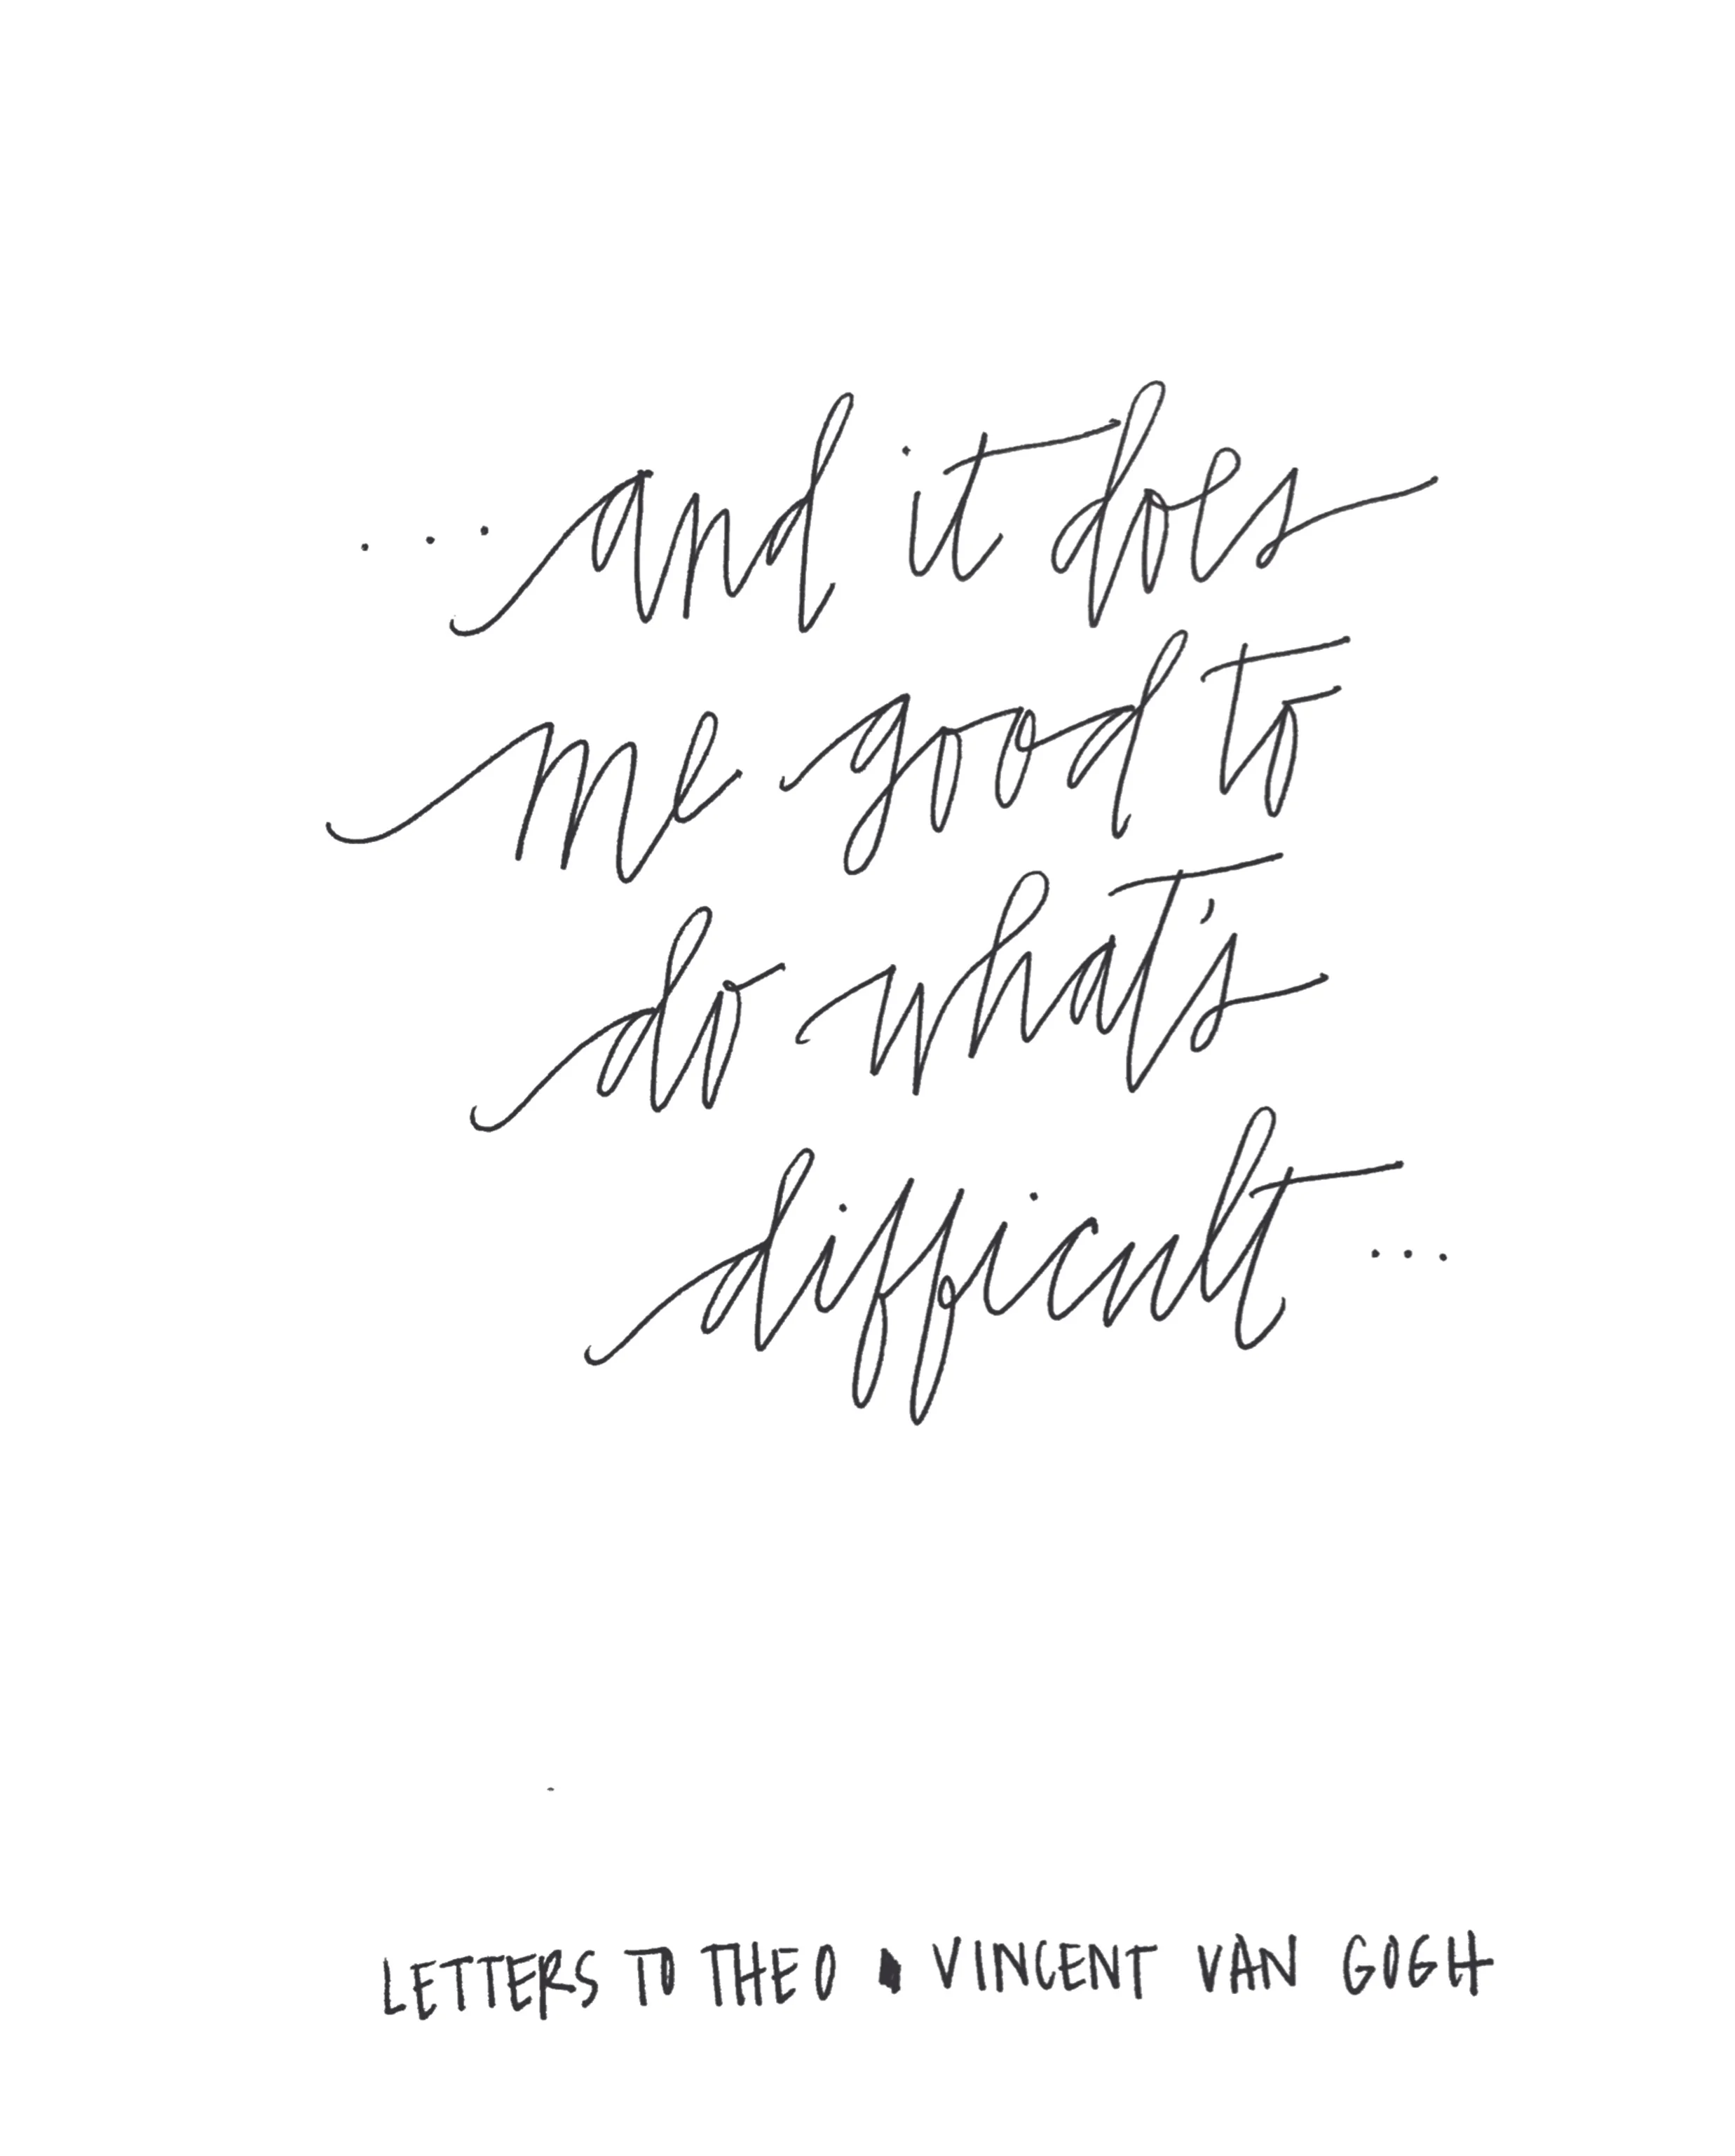 ...and it does
me good to
do what's
difficult...
LETTERS TO THEO ▪ VINCENT VAN GOGH